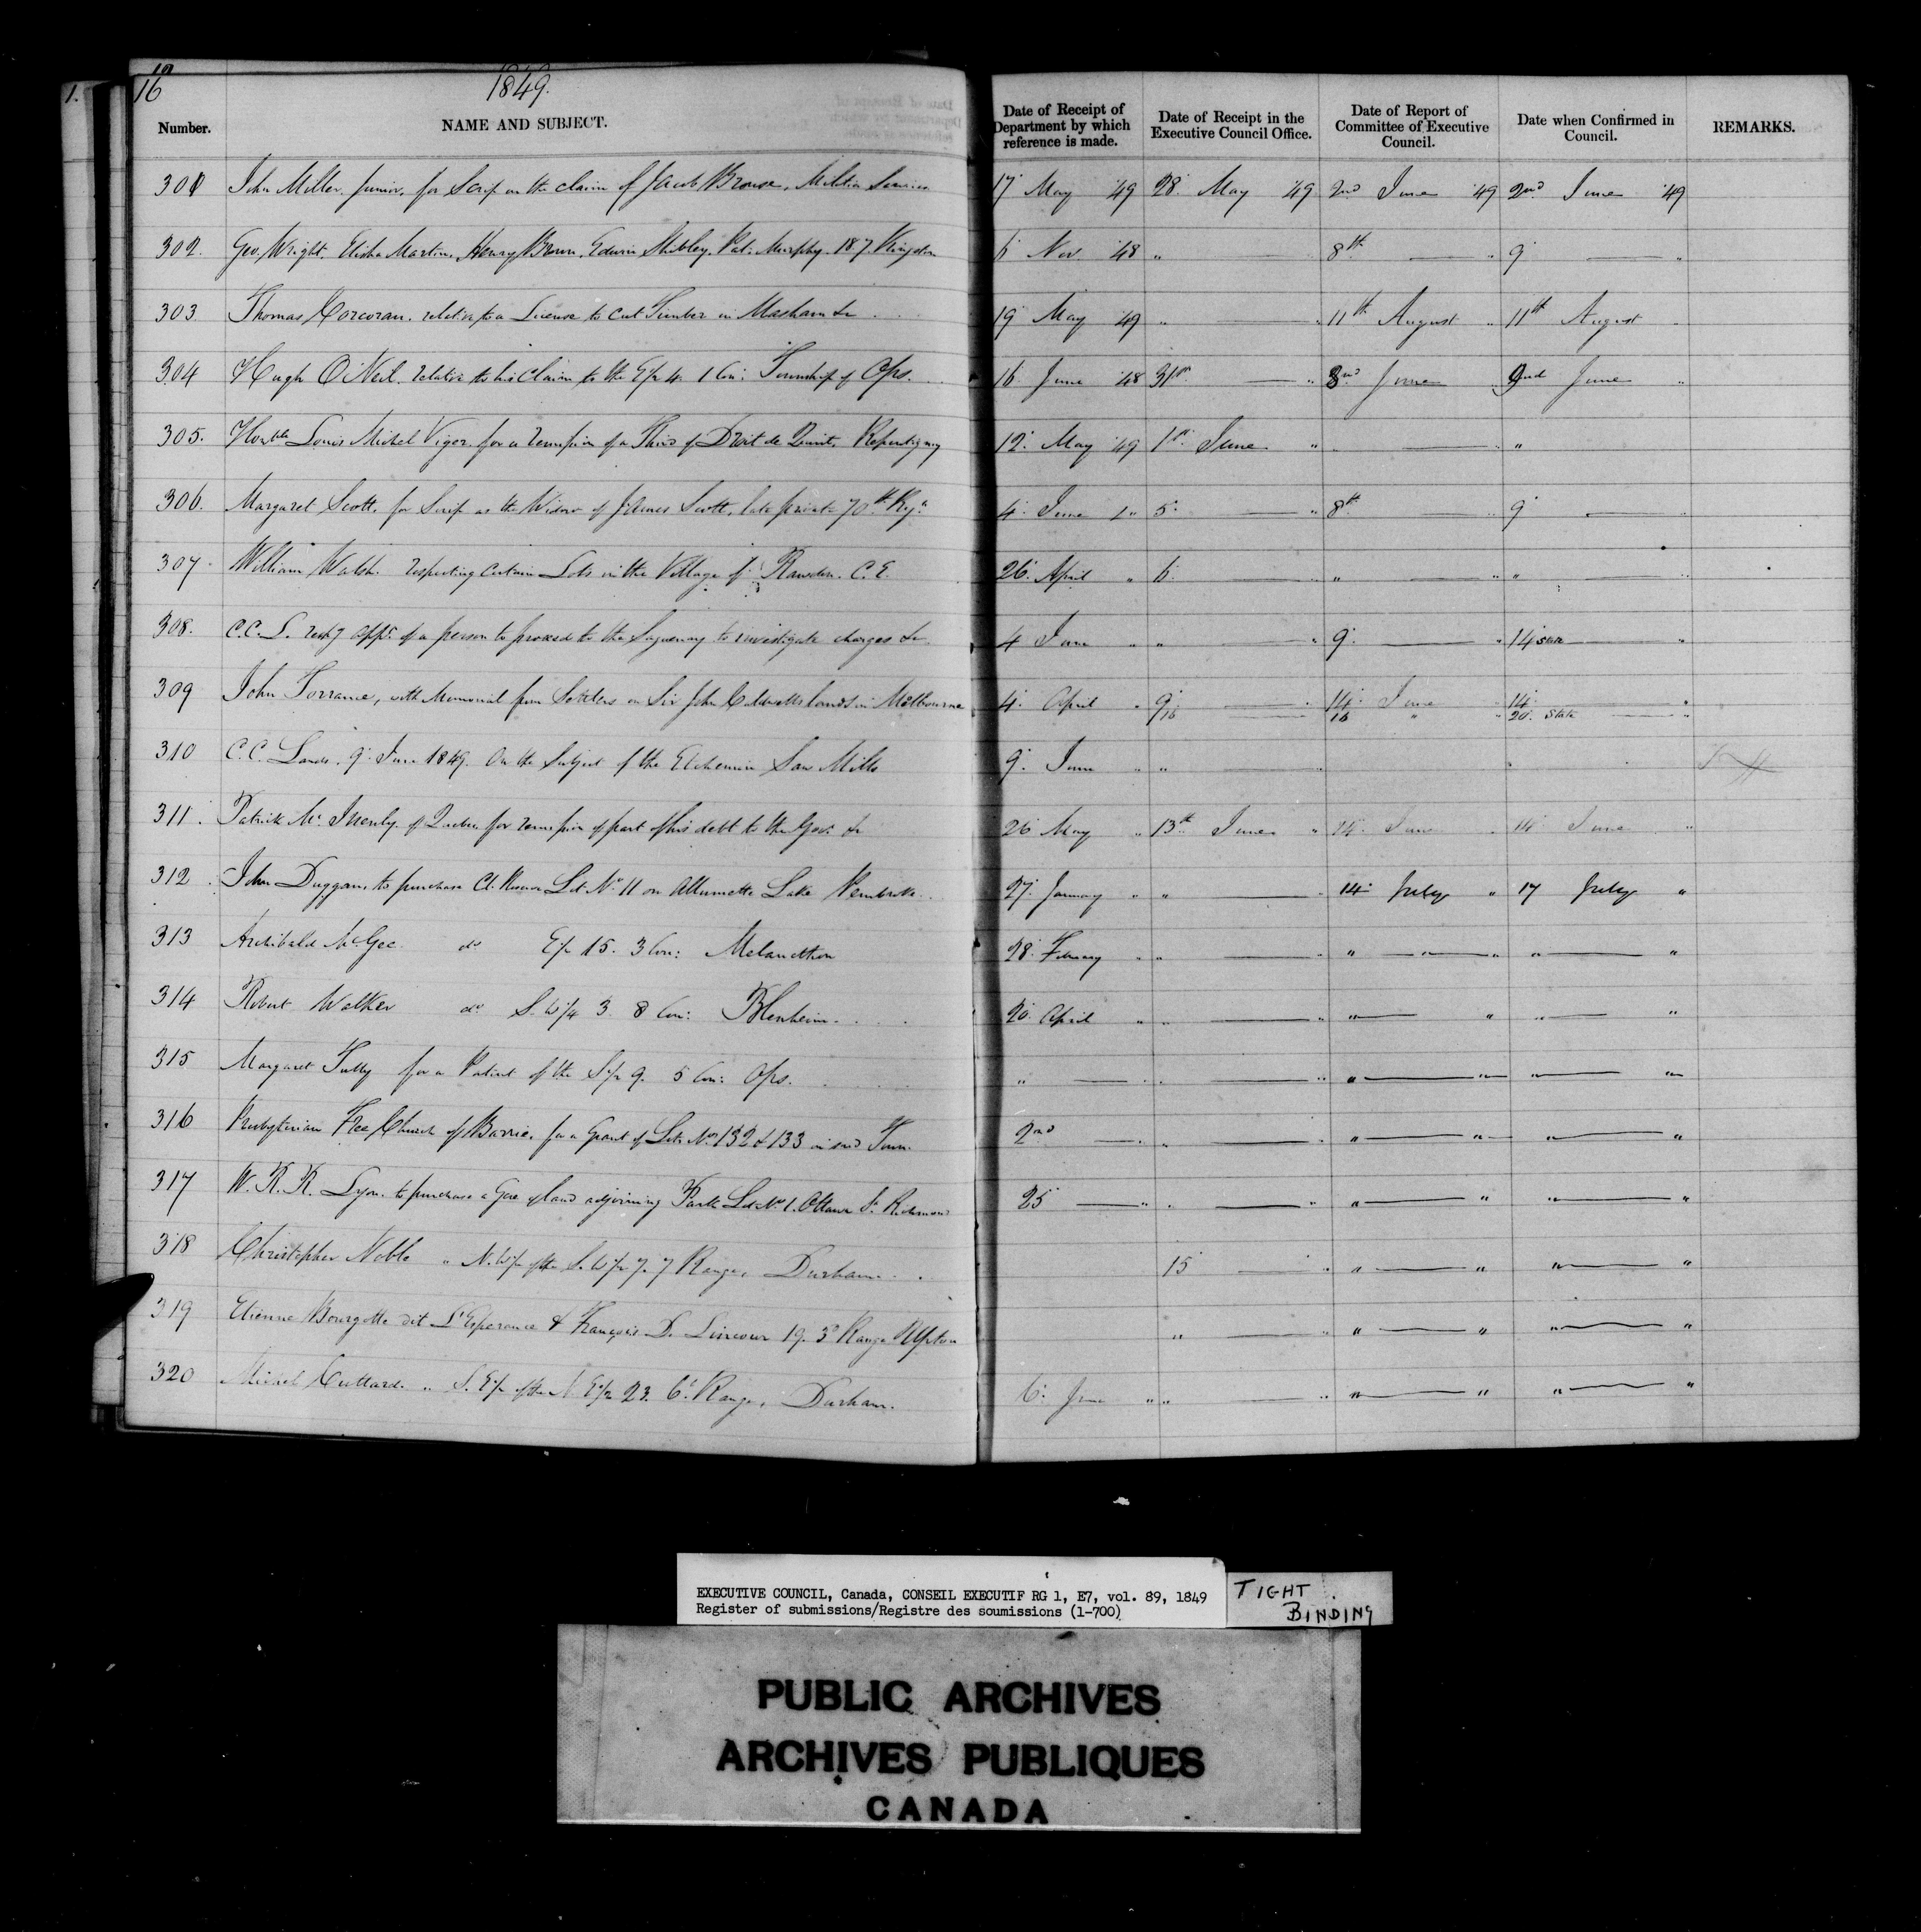 16 1849.
Number. NAME AND SUBJECT. Date of Receipt of Department by which reference is made. Date of Receipt in the Executive Council Office. Date of Report of Committee of Executive Council. Date when Confirmed in Council. REMARKS.
301 John Miller Junior, for Scrip on the claim of Jacob Brouse, Militia Services 17 May '49 28 May '49 2nd June '49 2nd June '49
302. Geo. Wright, Elisha Martin, Henry Brown, Edwin Shibley, Pat. Murphy. 187 Kingston 6 Nov. '48 " 8th " 9 "
303 Thomas Corcoran. relative to a License to cut Timber in Masham &c 19 May '49 " " 11th August " 11th August
304 Hugh O'Neil. relative to his Claim to the E/2 4. 1 Con: Township of Ops. 16 June '48 31st " 2nd June 2nd June "
305. Honble Louis Michel Viger for a remission of a Third of Droit de Quint, Repentigny 12 May '49 1st June " " " "
306. Margaret Scott, for Scrip as the Widow of James Scott, late private 70th Regt 4 June " 5 " 8th " 9 "
307. William Walsh. respecting certain Lots in the Village of Rawdon. C.E. 26 April " 6 " " " " "
308. C.C.L. respg appt of a person to proceed to the Saguenay to investigate charges &c 4 June " " " 9 " 14 State "
309 John Torrance, with Memorial from Settlers on Sir John Caldwells lands in Melbourne 4 April " 9 " 14 June 14 "
16 16 " " 20 State "
310 C.C. Lands. 9 June 1849. On the Subject of the Etchemin Saw Mills 9 June " "
311. Patrick Mc Inenly of Quebec for remission of part of his debt to the Govt &c 26 May " 13th June " 14 June " 14 June "
312. John Duggan, to purchase Cl. Reserve Lot No 11 on Allumette Lake Pembroke 27 January " " " 14 July " 17 July "
313 Archibald McGee do E/2 15. 3 Con: Melancthon 28 February " " " " " " " "
314 Robert Walker do S.W/4 3. 8 Con: Blenheim 20 April " " " " " " "
315 Margaret Tully for a Patent of the S/2 9. 5 Con: Ops. " " " " " " " "
316 Presbyterian Free Church of Barrie, for a Grant of Lots No 132 & 133 in said Town. 2nd " " " " " " "
317 W.R.R. Lyon. to purchase a Gore of land adjoining Park Lot No 1. Ottawa St. Richmond 25 " " " " " " "
318 Christopher Noble " N.W/2 of the S.W/2 7. 7 Range, Durham 15 " " " " "
319 Etienne Bourgette dit L'Esperance & François D. 19. 3d Range Upton " " " " " "
320 Michel " S.E/2 of the N.E/2 23. 6t Range, Durham. 6 June " " " " " " "
EXECUTIVE COUNCIL, Canada, CONSEIL EXECUTIF RG 1, E7, vol. 89, 1849
Register of submissions/Registre des soumissions (1-700)
TIGHT
BINDING
PUBLIC ARCHIVES
ARCHIVES PUBLIQUES
CANADA